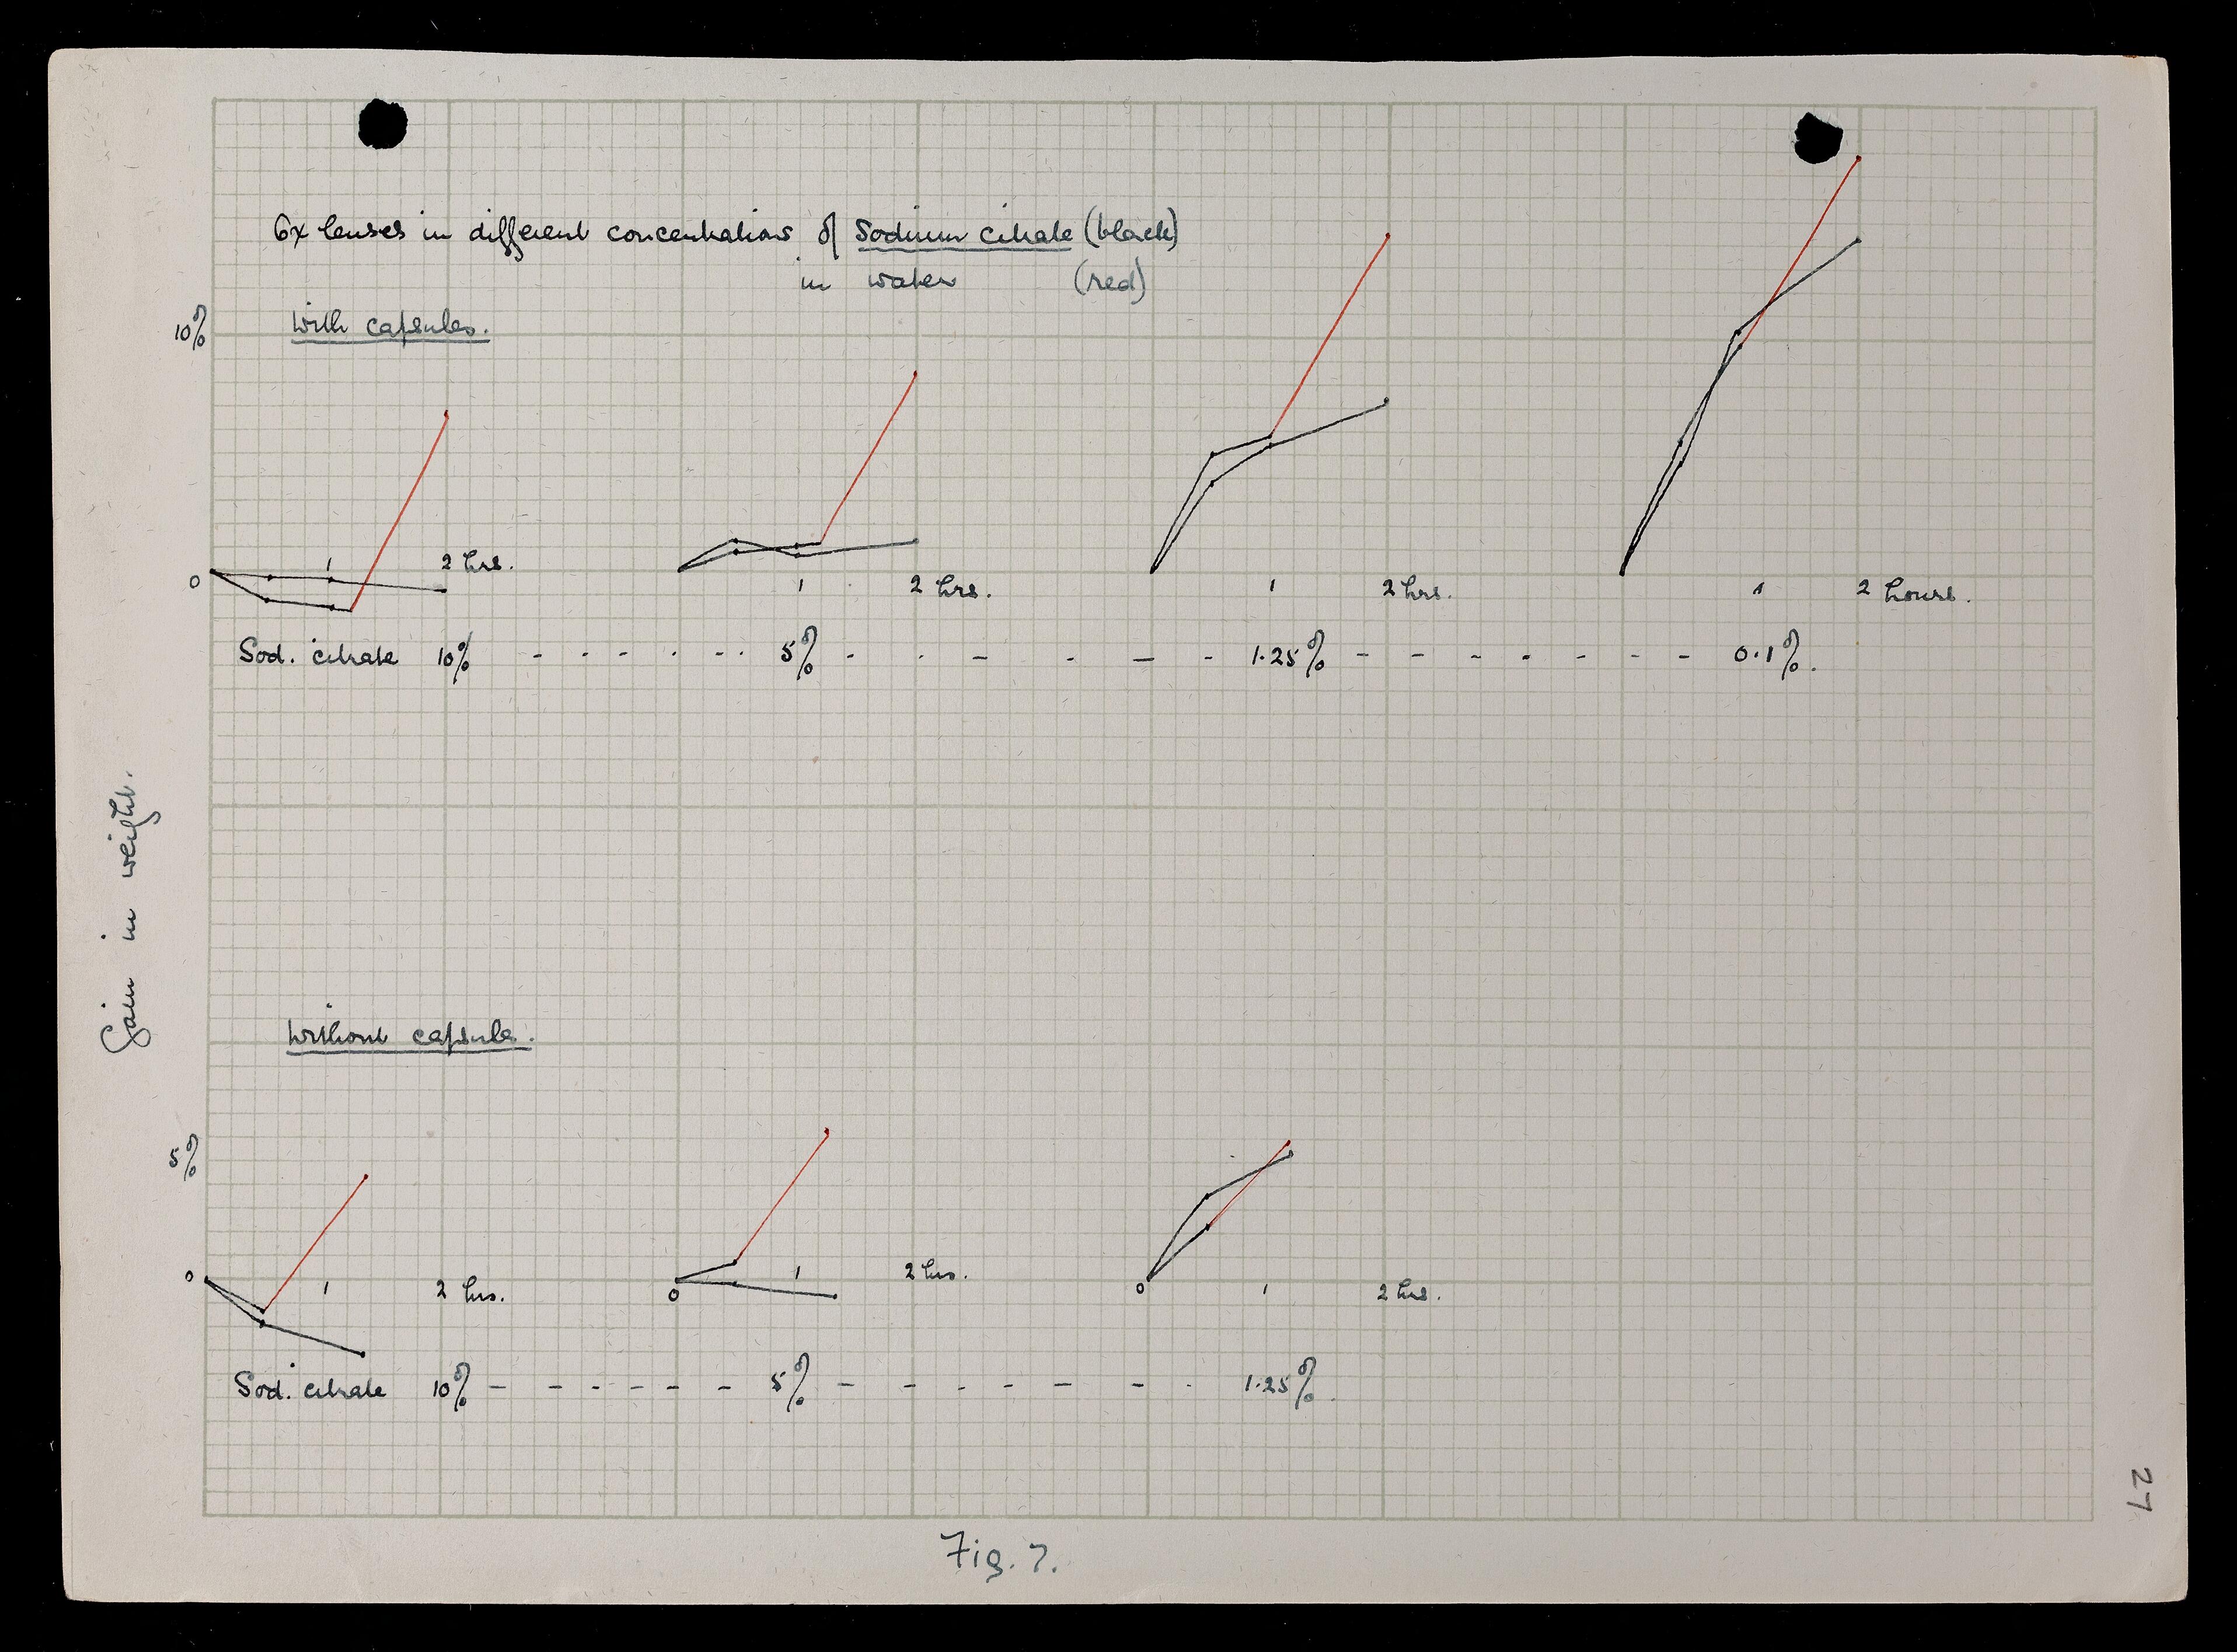 Ox lenses in different concentrations of Sodium citrate (black)
in water (red)
With capsules.
10%
0
1 2 hrs.
1 2 hrs.
1 2 hrs.
1 2 hours.
Sod. citrate 10% - - - - - - - 5% - - - - - - 1.25% - - - - - - - 0.1%.
Gain in weight.
Without capsule.
5%
0
1 2 hrs.
0 1 2 hrs.
0 1 2 hrs.
Sod. citrate 10% - - - - - - 5% - - - - - - 1.25%.
Fig. 7.
27